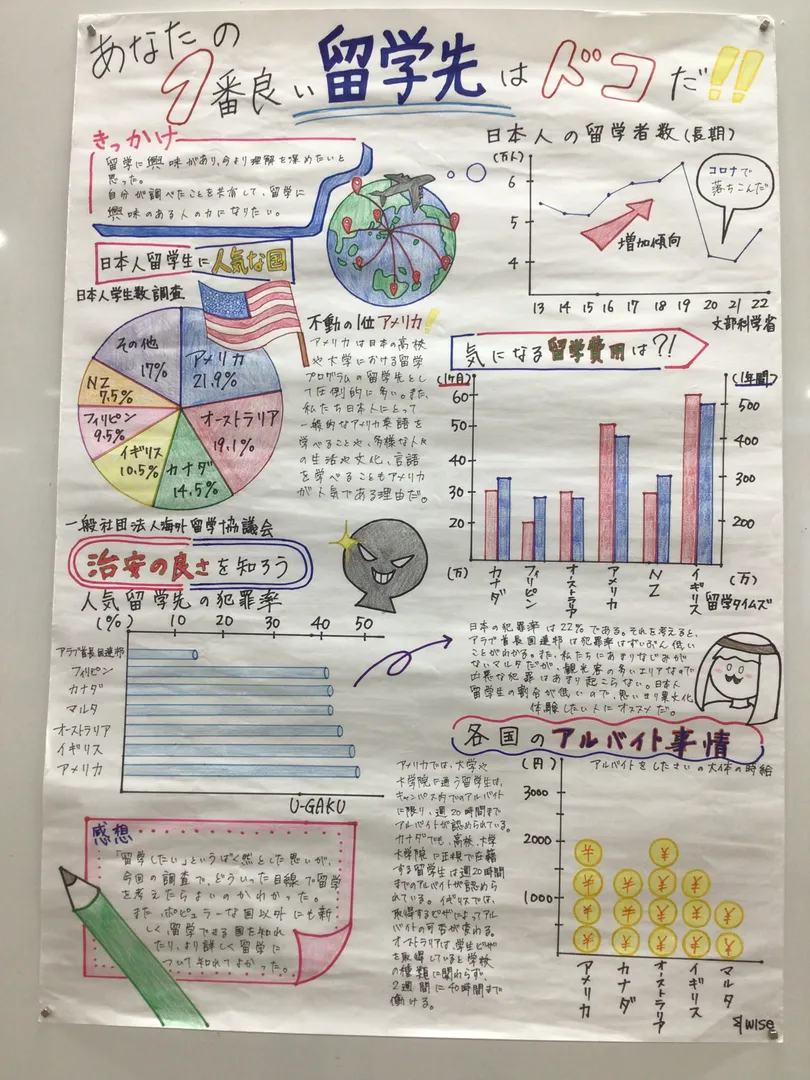 あなたの
1番良い留学先はドコだ!!
きっかけ
留学に興味があり、今より理解を深めたいと
思った。
自分が調べたことを共有して、留学に
興味のある人の力になりたい。
日本人の留学者数(長期)
(万人)
6
5
4
コロナで
落ちこんだ
増加傾向
13 14 15 16 17 18 19 20 21 22
文部科学省
日本人留学生に人気な国
日本人学生数調査
アメリカ
21.9%
オーストラリア
19.1%
カナダ
14.5%
イギリス
10.5%
フィリピン
9.5%
NZ
7.5%
その他
17%
一般社団法人海外留学協議会
不動の1位アメリカ!
アメリカは日本の高校
や大学における留学
プログラムの留学先とし
て圧倒的に多い。また、
私たち日本人にとって
一般的なアメリカ英語を
学べることや、多様な人々
の生活や文化、言語
を学べることもアメリカ
が人気である理由だ。
気になる留学費用は?!
(1ヶ月)
(1年間)
60
50
40
30
20
(万)
500
400
300
200
(万)
カナダ
フィリピン
オーストラリア
アメリカ
NZ
イギリス
留学タイムズ
治安の良さを知ろう
人気留学先の犯罪率
(%) 10 20 30 40 50
アラブ首長国連邦
フィリピン
カナダ
マルタ
オーストラリア
イギリス
アメリカ
U-GAKU
日本の犯罪率は22%である。それを考えると、
アラブ首長国連邦は犯罪率はずいぶん低い
ことがわかる。また、私たちにあまりなじみが
ないマルタだが、観光客の多いエリアなので
凶悪な犯罪はあまり起こらない。日本人
留学生の割合が低いので、思いきり異文化
体験したい人にオススメだ。
各国のアルバイト事情
アメリカでは、大学や
大学院に通う留学生は、
キャンパス内でのアルバイト
に限り、週20時間まで
アルバイトが認められている。
カナダでも、高校、大学
大学院に正規で在籍
する留学生は週20時間
までのアルバイトが認めら
れている。イギリスでは、
取得するビザによってアル
バイトの可否が変わる。
オーストラリアは、学生ビザ
を取得していると学校
の種類に関わらず、
2週間に40時間まで
働ける。
(円)
アルバイトをしたさいの大体の時給
3000
2000
1000
¥ ¥ ¥ ¥
¥ ¥ ¥
¥ ¥ ¥ ¥
¥ ¥ ¥
¥ ¥
アメリカ
カナダ
オーストラリア
イギリス
マルタ
wise
感想
「留学したい」というばく然とした思いが、
今回の調査で、どういった目線で留学
を考えたらよいのかわかった。
また、ポピュラーな国以外にも新
しく留学できる国を知れ
たり、より詳しく留学に
ついて知れてよかった。